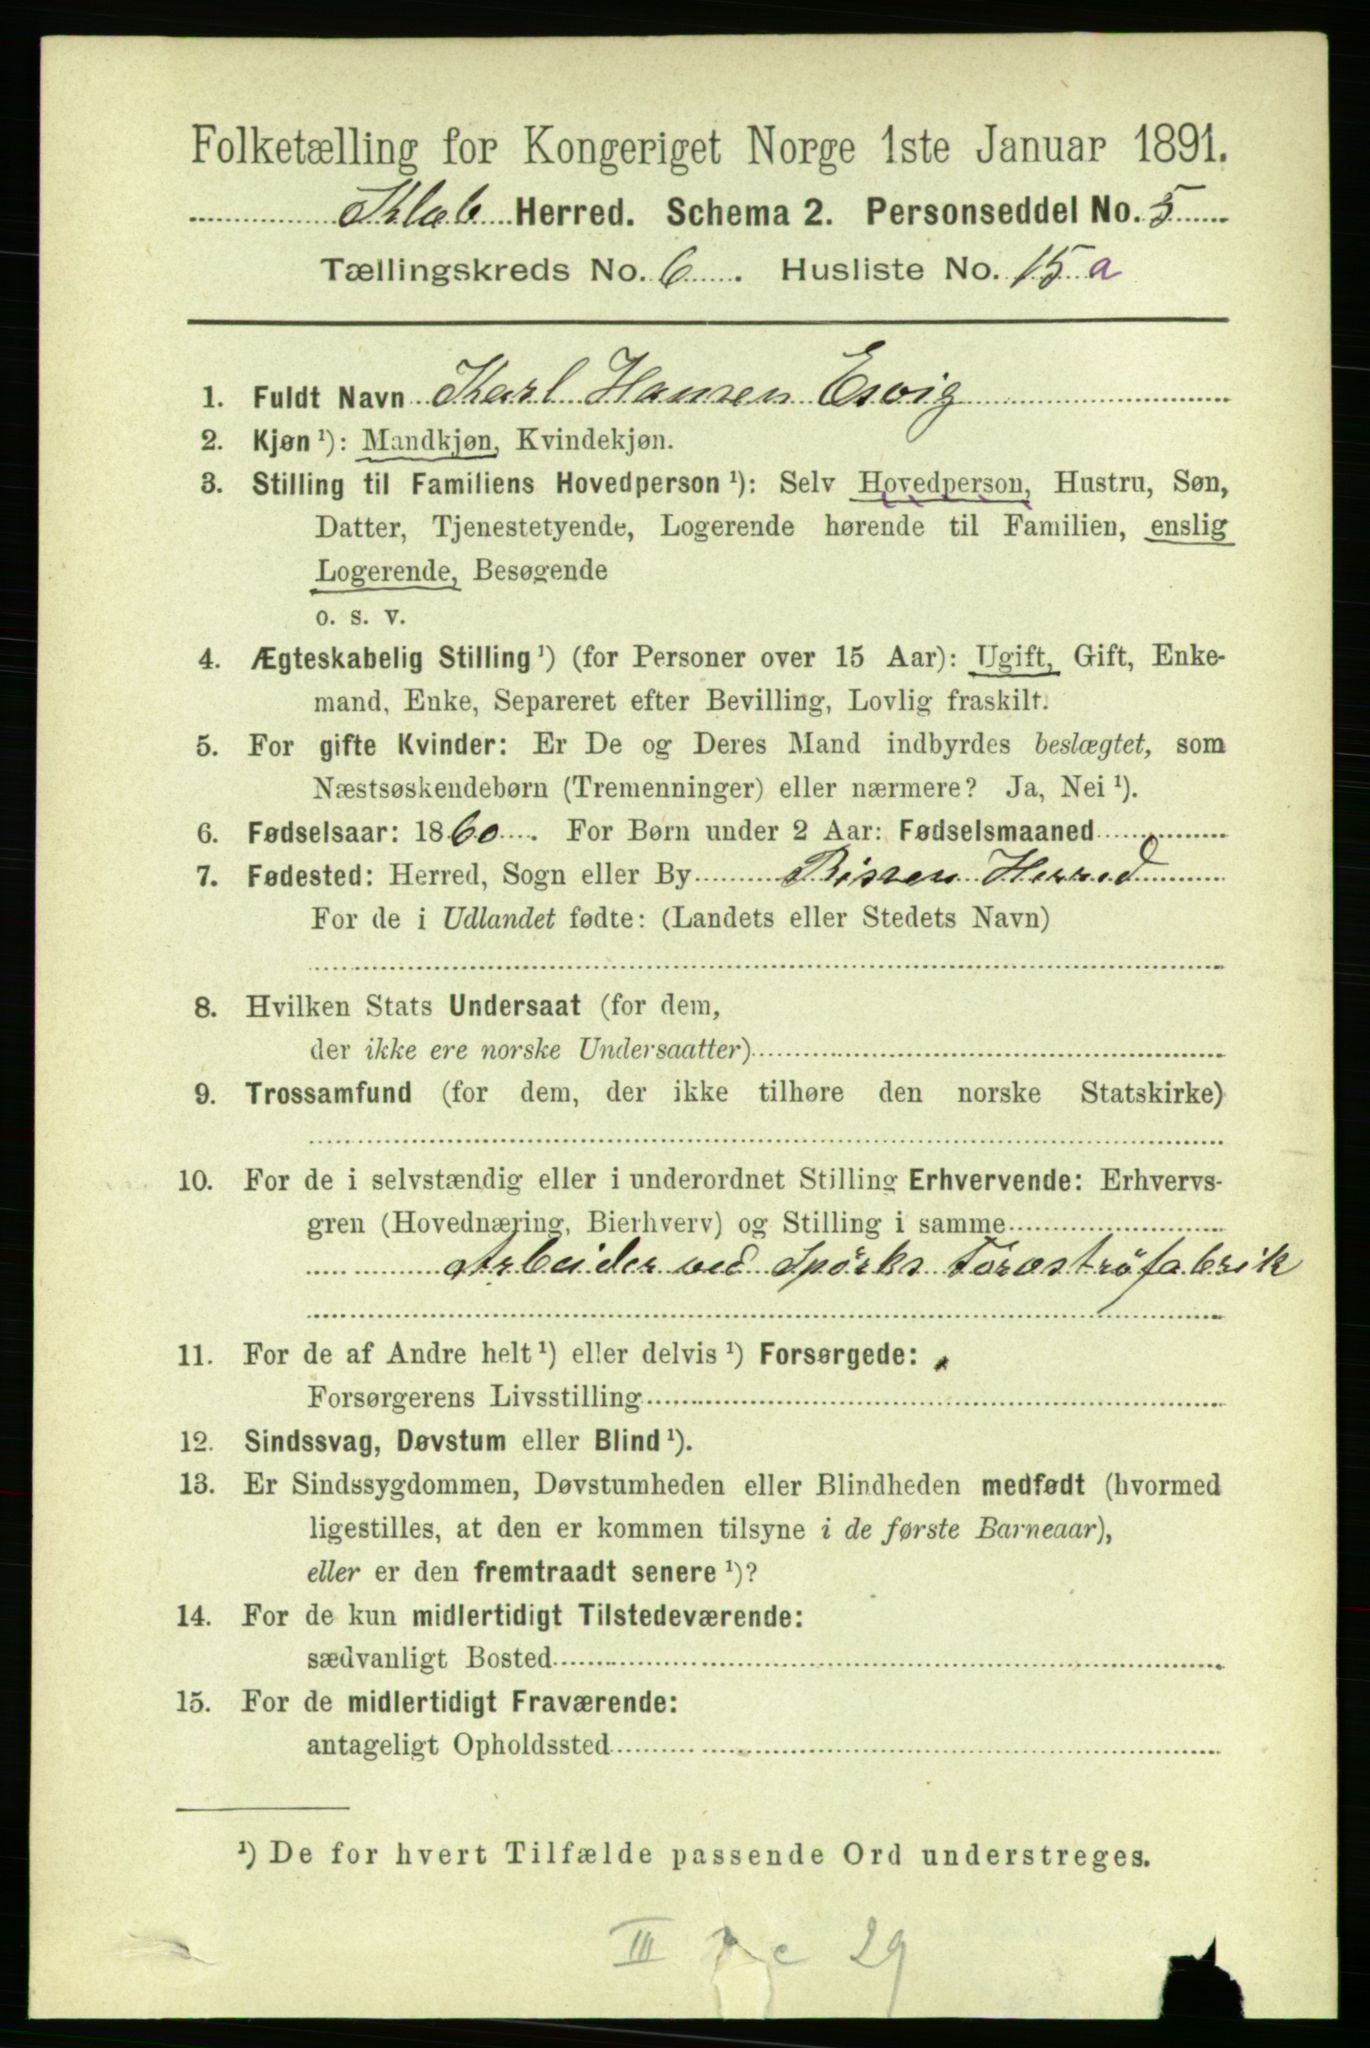 Folketælling for Kongeriget Norge 1ste Januar 1891.
Klæb Herred. Schema 2. Personseddel No. 5
Tællingskreds No. 6. Husliste No. 15 a
1. Fuldt Navn Karl Hansen Esvig
2. Kjøn ¹): Mandkjøn, Kvindekjøn.
3. Stilling til Familiens Hovedperson ¹): Selv Hovedperson, Hustru, Søn,
Datter, Tjenestetyende, Logerende hørende til Familien, enslig
Logerende, Besøgende
o. s. v.
4. Ægteskabelig Stilling ¹) (for Personer over 15 Aar): Ugift, Gift, Enke-
mand, Enke, Separeret efter Bevilling, Lovlig fraskilt.
5. For gifte Kvinder: Er De og Deres Mand indbyrdes beslægtet, som
Næstsøskendebørn (Tremenninger) eller nærmere? Ja, Nei ¹).
6. Fødselsaar: 1860. For Børn under 2 Aar: Fødselsmaaned
7. Fødested: Herred, Sogn eller By Rissen Herred
For de i Udlandet fødte: (Landets eller Stedets Navn)
8. Hvilken Stats Undersaat (for dem,
der ikke ere norske Undersaatter)
9. Trossamfund (for dem, der ikke tilhøre den norske Statskirke)
10. For de i selvstændig eller i underordnet Stilling Erhvervende: Erhvervs-
gren (Hovednæring, Bierhverv) og Stilling i samme
Arbeider ved Spørks Torvstrøfabrik
11. For de af Andre helt ¹) eller delvis ¹) Forsørgede:
Forsørgerens Livsstilling
12. Sindssvag, Døvstum eller Blind ¹).
13. Er Sindssygdommen, Døvstumheden eller Blindheden medfødt (hvormed
ligestilles, at den er kommen tilsyne i de første Barneaar),
eller er den fremtraadt senere ¹)?
14. For de kun midlertidigt Tilstedeværende:
sædvanligt Bosted
15. For de midlertidigt Fraværende:
antageligt Opholdssted
¹) De for hvert Tilfælde passende Ord understreges.
III c 29